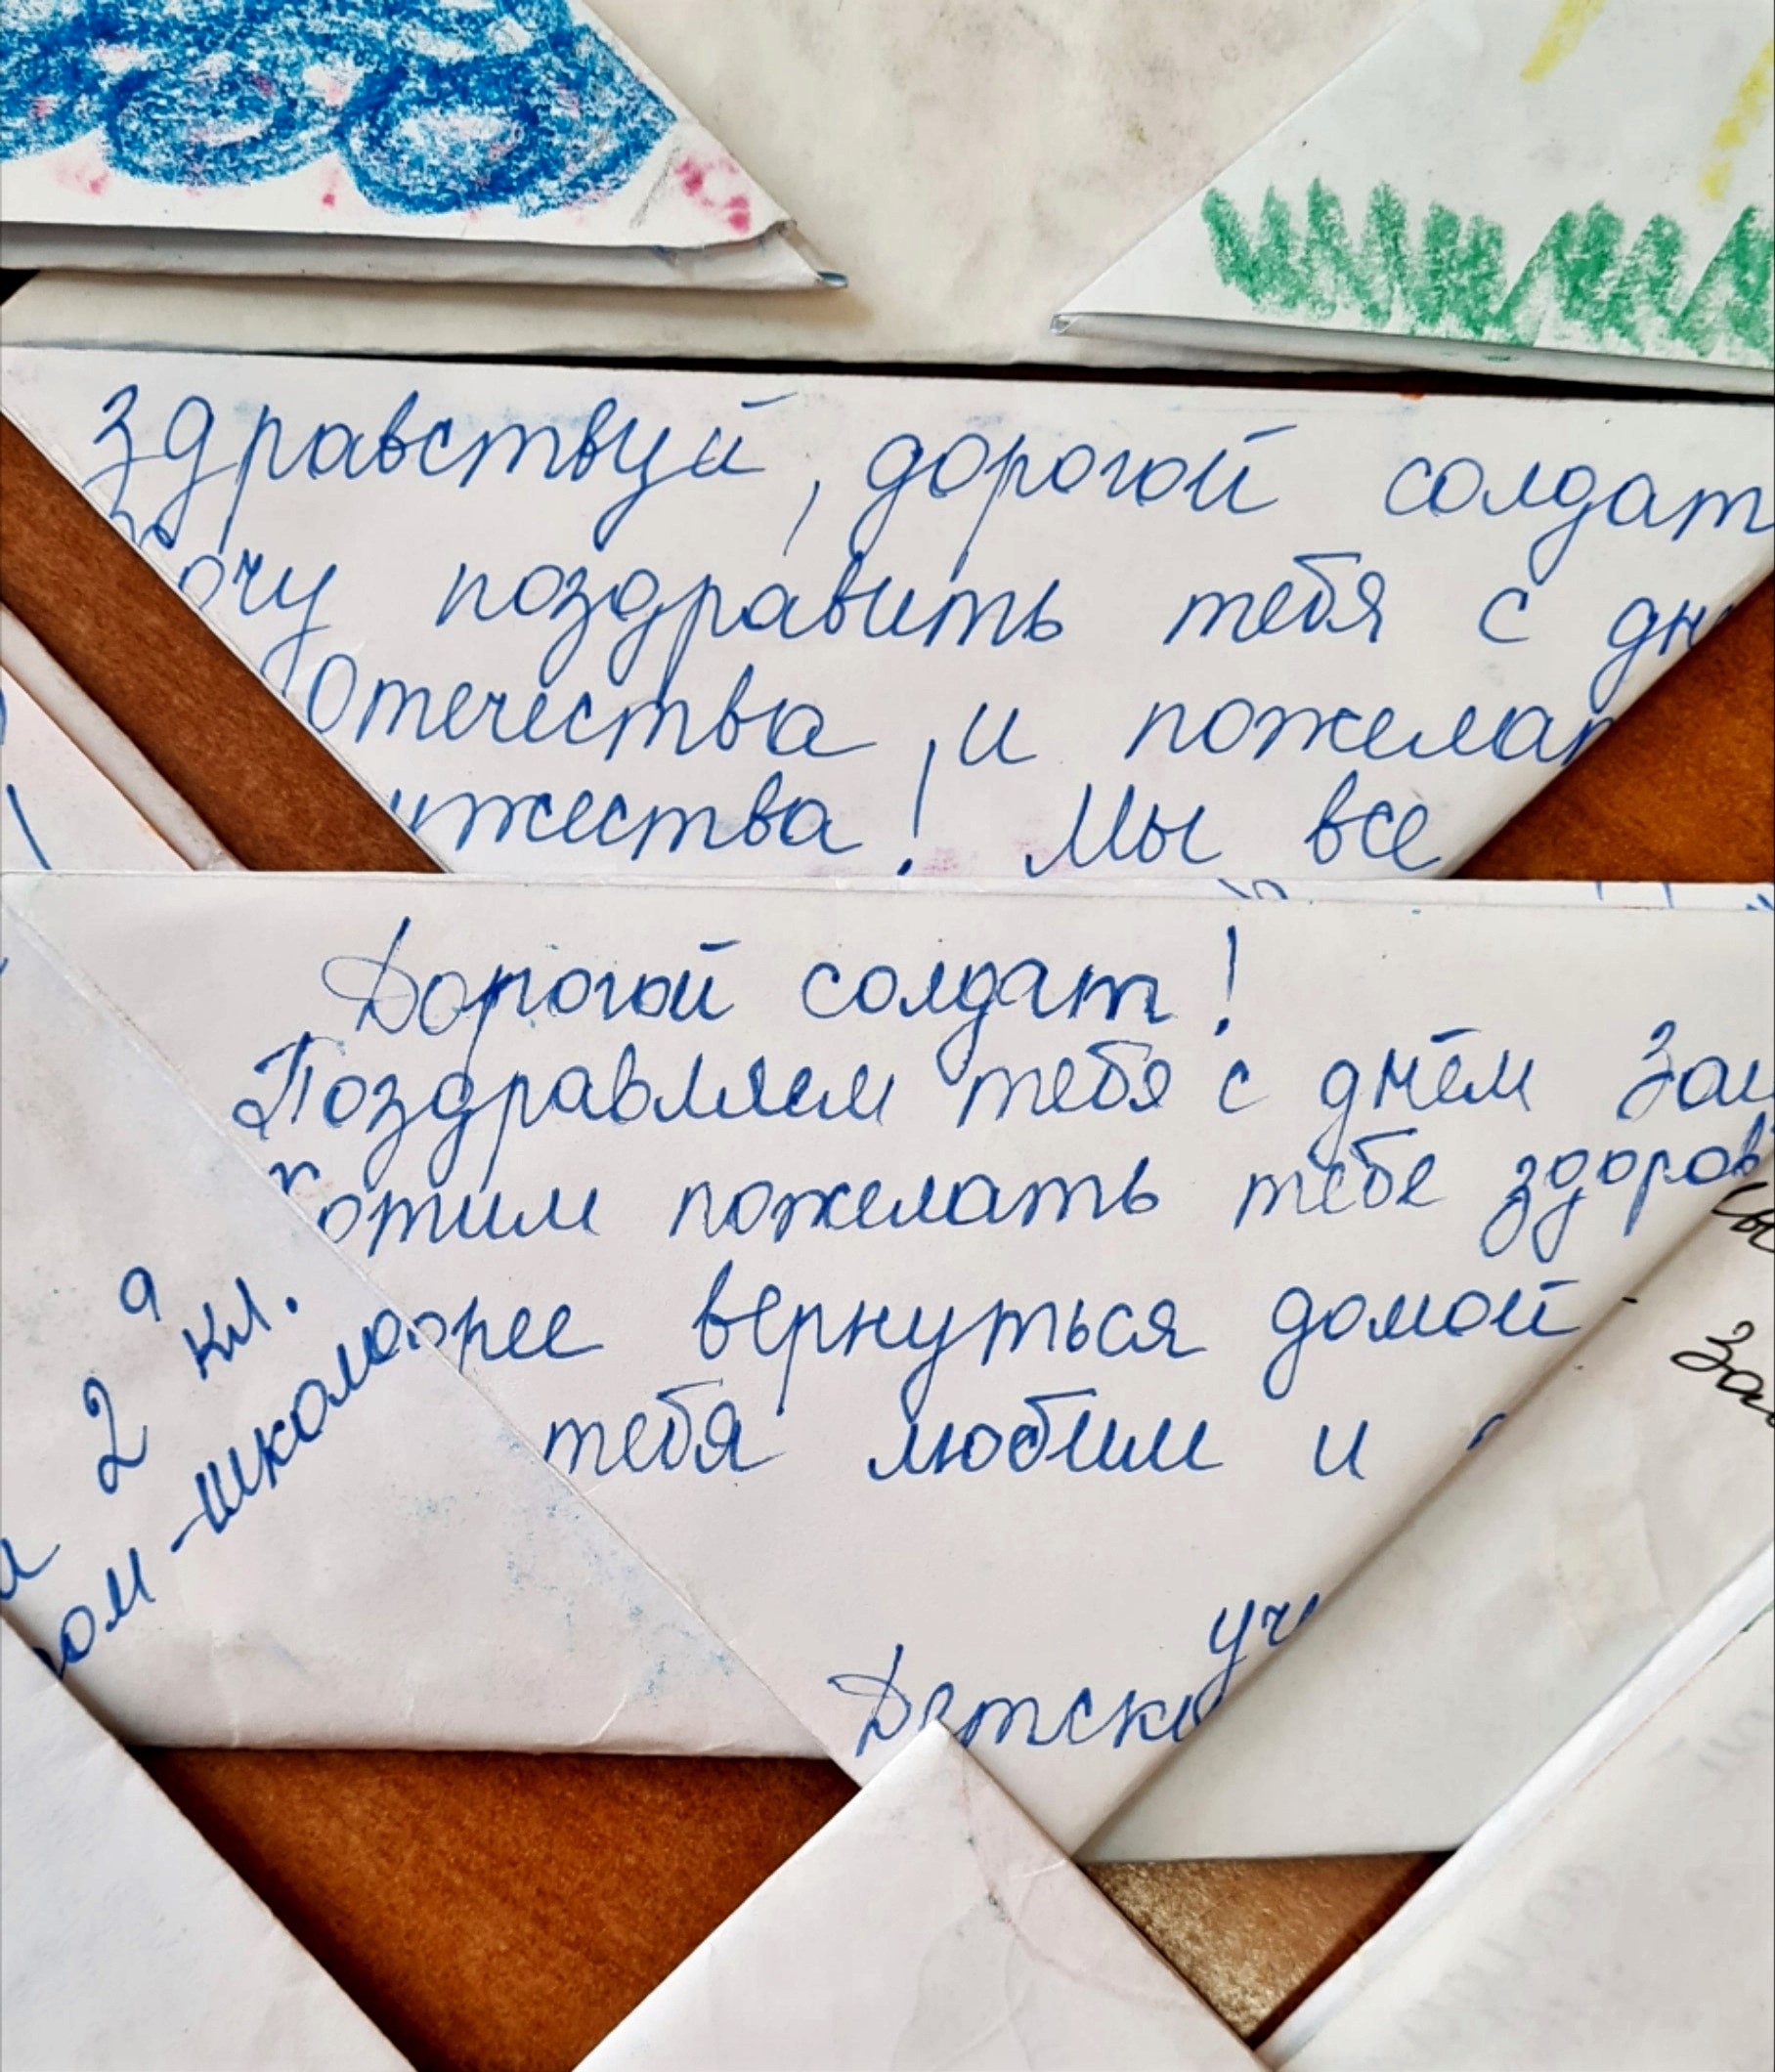 Здравствуй, дорогой солдат
Хочу поздравить тебя с дн
Отечества, и пожелат
ужества! Мы все
Дорогой солдат!
Поздравляем тебя с днём Защ
Хотим пожелать тебе здоров
орее вернуться домой
тебя любим и
уч
Детско
2 а кл.
ом-школа
сы
За